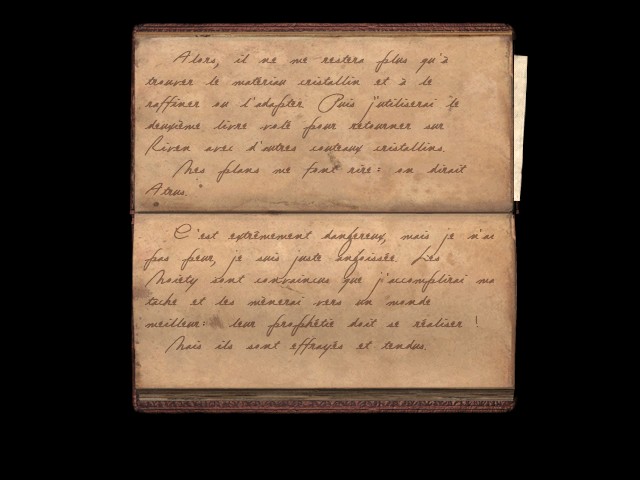 Alors, il ne me restera plus qu'à
trouver le matériau cristallin et à le
raffiner ou l'adapter. Puis j'utiliserai le
deuxième livre volé pour retourner sur
Riven avec d'autres couteaux cristallins.
Mes plans me font rire : on dirait
Atrus.
C'est extrêmement dangereux, mais je n'ai
pas peur, je suis juste angoissée. Les
Moiety sont convaincus que j'accomplirai ma
tâche et les mènerai vers un monde
meilleur : leur prophétie doit se réaliser !
Mais ils sont effrayés et tendus.